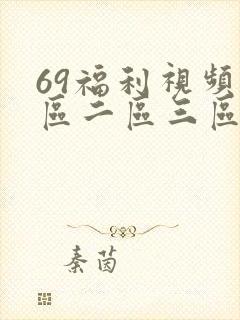 69福利視頻
區二區三區
秦茵